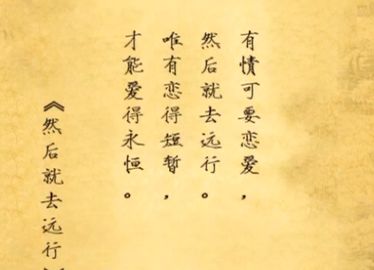 有情可要恋爱，
然后就去远行。
唯有恋得短暂，
才能爱得永恒。
《然后就去远行》